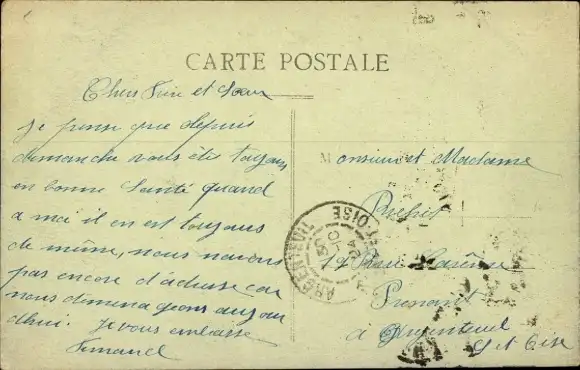 CARTE POSTALE
Chers Frère et Soeur
Je pense que depuis
dimanche vous êtes toujours
en bonne santé quand
a moi il en est toujours
de même, nous navons
pas encore d'adresse car
nous dimenageons aujour
dhui. Je vous embrasse
Fernand
Monsieur et Madame
19 Rue
à Argenteuil
S et Oise
ARGENTEUIL
ET-OISE